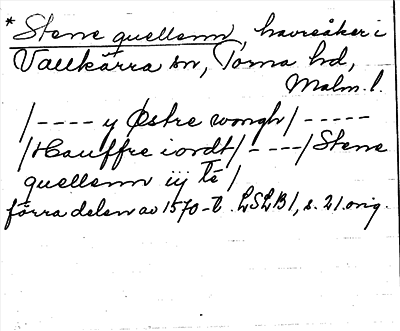 * Stene quellenn, havreåker i
Vallkärra sn, Torna hd,
Malm. l.
/---- y Østre wongh/-----
/Hauffre iordt/----/Stene
quellenn iij Té/
förra delen av 1570-t. LSLB1, s. 21. orig.